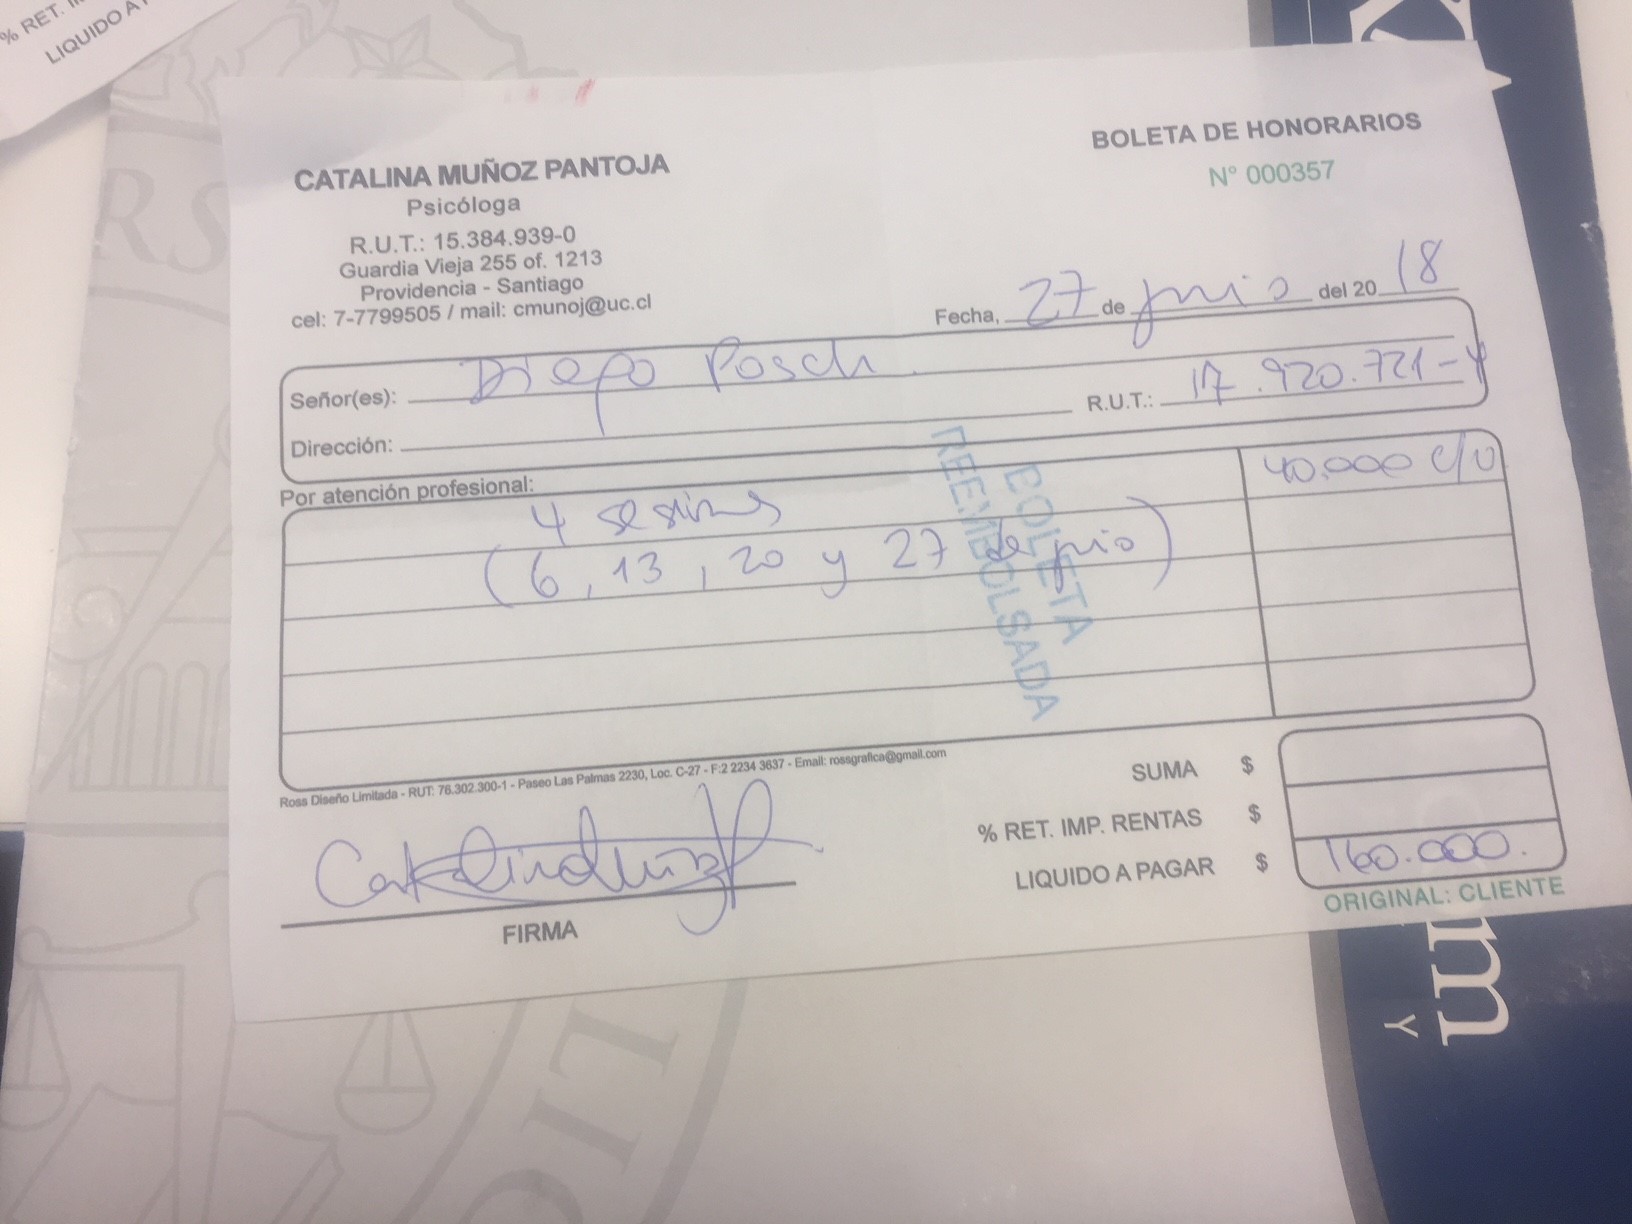 % RET. I
LIQUIDO A
CATALINA MUÑOZ PANTOJA
Psicóloga
R.U.T.: 15.384.939-0
Guardia Vieja 255 of. 1213
Providencia - Santiago
cel: 7-7799505 / mail: cmunoj@uc.cl
BOLETA DE HONORARIOS
N° 000357
Fecha, 27 de junio del 20 18
Señor(es): Diego Posch
R.U.T.: 17.920.721-4
Dirección:
Por atención profesional:
4 sesiones
40.000 c/u
(6, 13, 20 y 27 de junio)
BOLETA
REEMBOLSADA
Ross Diseño Limitada - RUT: 76.302.300-1 - Paseo Las Palmas 2230, Loc. C-27 - F:2 2234 3637 - Email: rossgrafica@gmail.com
SUMA $
% RET. IMP. RENTAS $
LIQUIDO A PAGAR $ 160.000.
ORIGINAL: CLIENTE
FIRMA